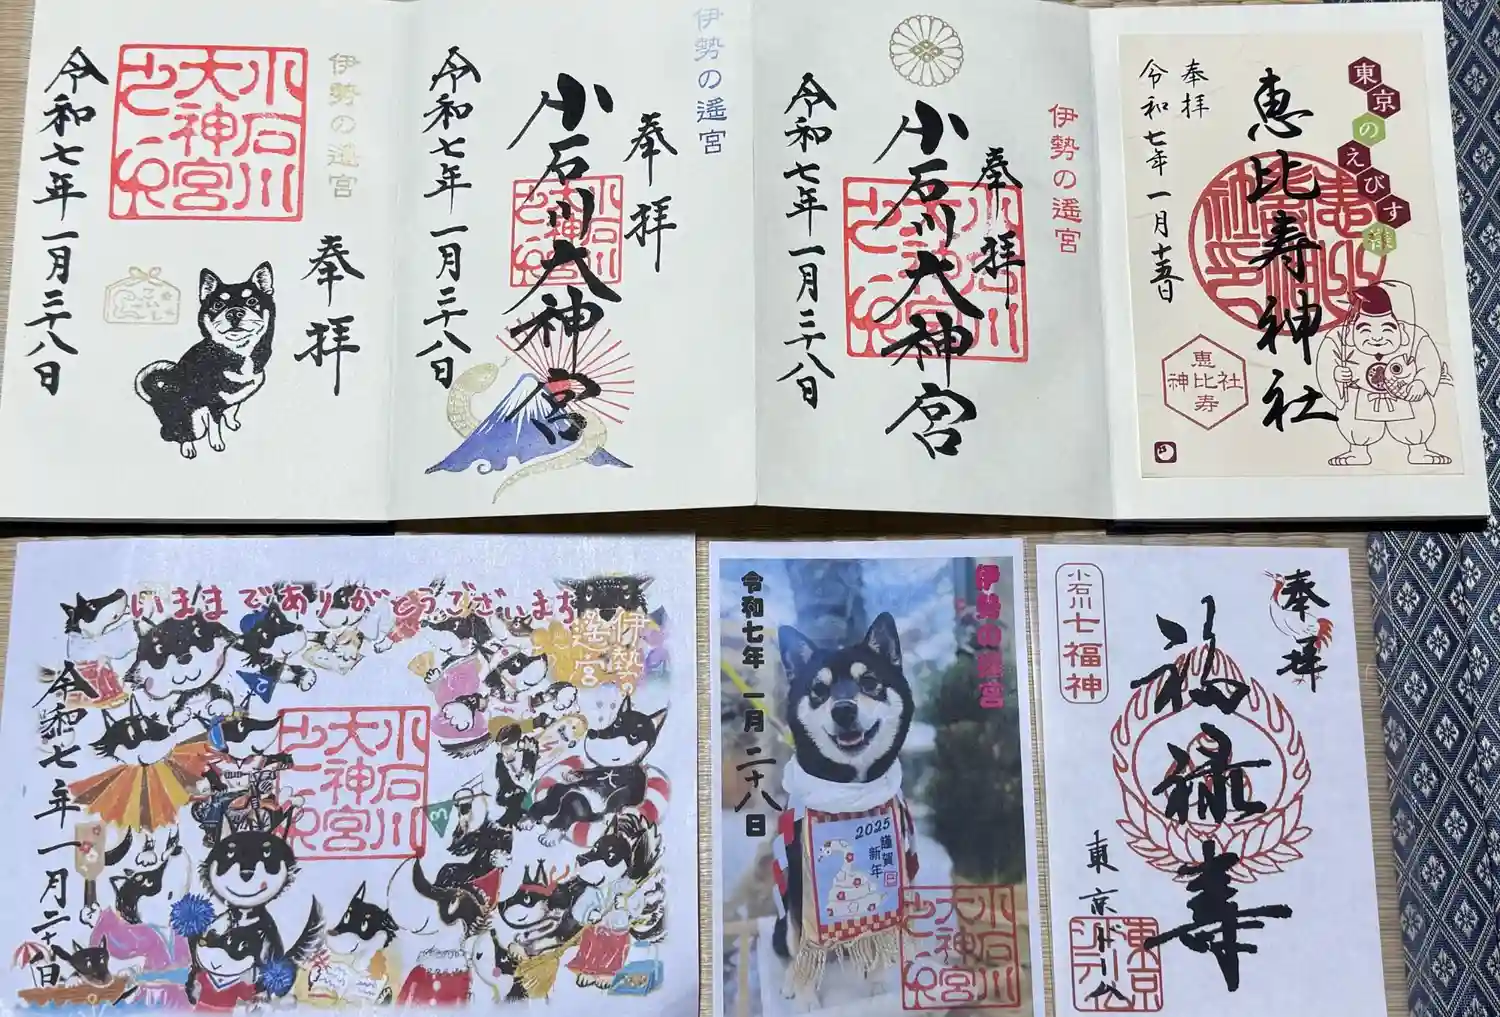 伊勢の遥宮
奉拝
小石川
大神宮
令和七年一月二十八日
伊勢の遥宮
奉拝
小石川大神宮
小石川
大神宮
令和七年一月二十八日
伊勢の遥宮
奉拝
小石川大神宮
小石川
大神宮
令和七年一月二十八日
東京のえびす様
奉拝
恵比寿神社
令和七年一月十五日
恵比寿
神社
いままでありがとうございます
伊勢の
遥宮
小石川
大神宮
令和七年一月二十八日
伊勢の遥宮
令和七年一月二十八日
2025
謹賀
新年
小石川
大神宮
奉拝
小石川七福神
福禄寿
東京ドーム
東京